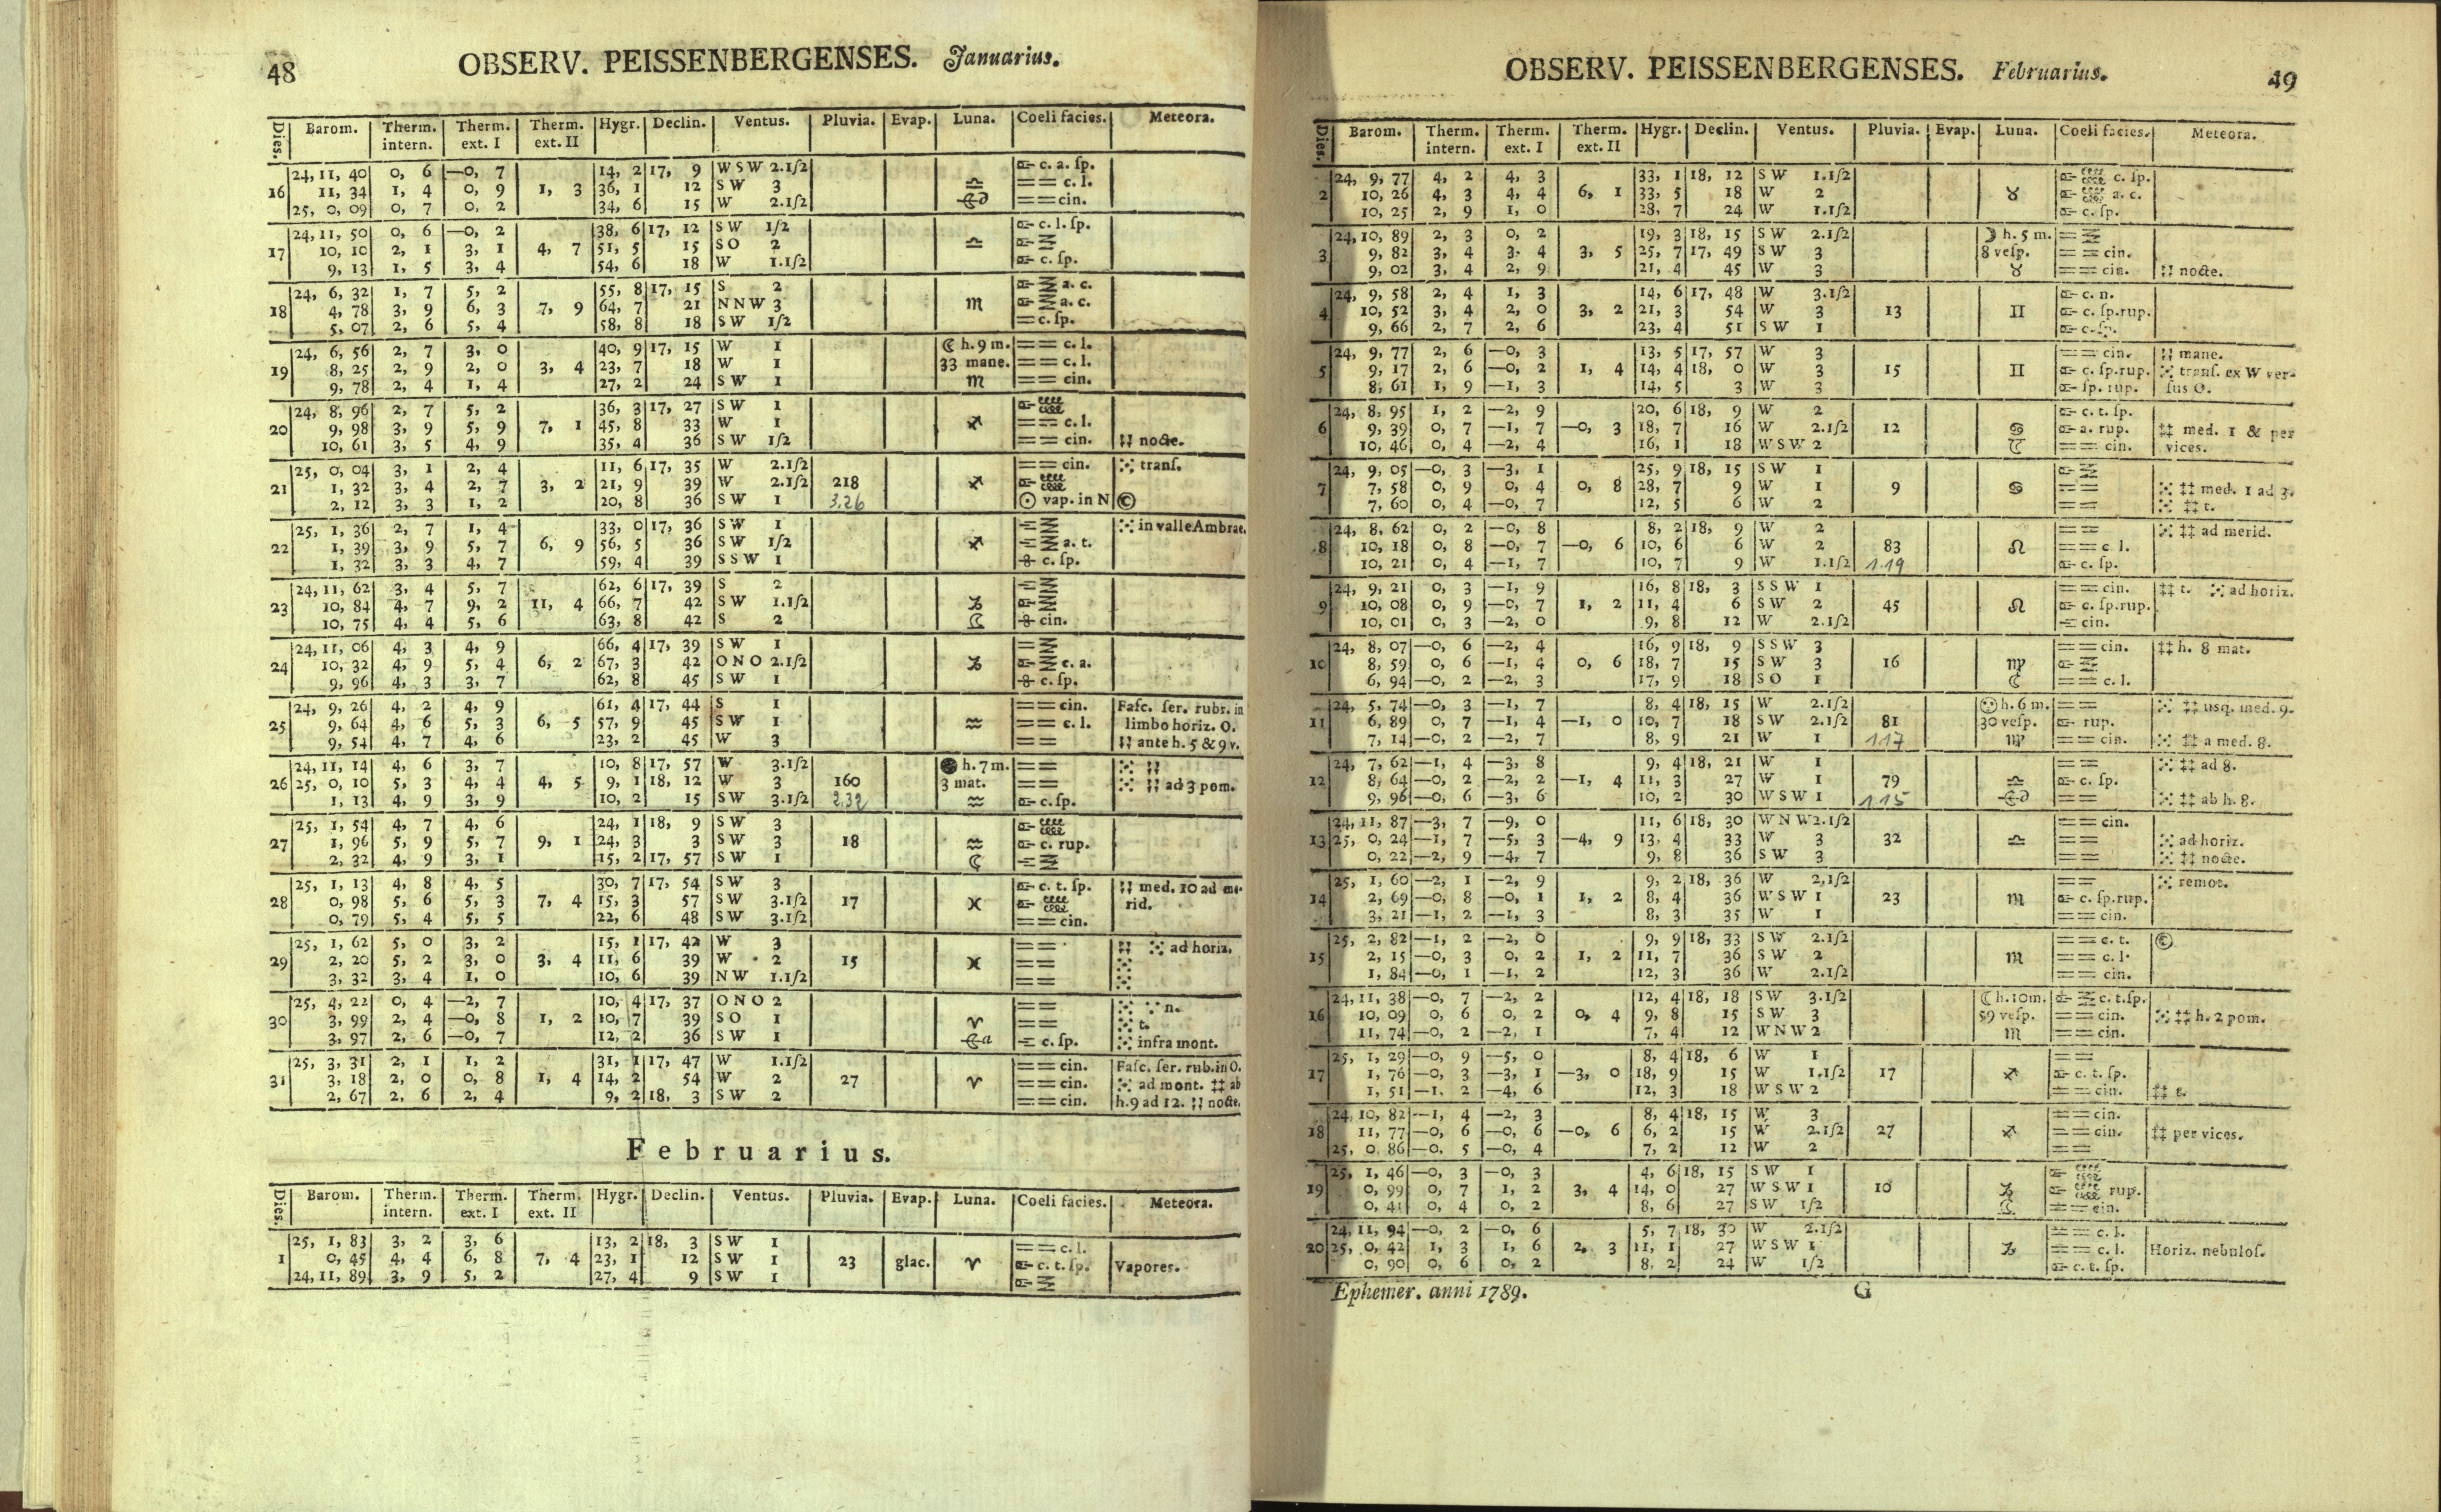 48 OBSERV. PEISSENBERGENSES. Januarius.
Dies. Barom. Therm. intern. Therm. ext. I Therm. ext. II Hygr. Declin. Ventus. Pluvia. Evap. Luna. Coeli facies. Meteora.
24, 11, 40 0, 6 —0, 7 14, 2 17, 9 WSW 2.1/2 c. a. ſp.
16 11, 34 1, 4 0, 9 1, 3 36, 1 12 SW 3 ♎ == c. l.
25, 0, 09 0, 7 0, 2 34, 6 15 W 2.1/2 == cin.
24, 11, 50 0, 6 —0, 2 38, 6 17, 12 SW 1/2 c. l. ſp.
17 10, 10 2, 1 3, 1 4, 7 51, 5 15 SO 2 ♎
9, 13 1, 5 3, 4 54, 6 18 W 1.1/2 c. ſp.
24, 6, 32 1, 7 5, 2 55, 8 17, 15 S 2 a. c.
18 4, 78 3, 9 6, 3 7, 9 64, 7 21 NNW 3 ♏ a. c.
5, 07 2, 6 5, 4 58, 8 18 SW 1/2 = c. ſp.
24, 6, 56 2, 7 3, 0 40, 9 17, 15 W 1 ☾ h. 9 m. == c. l.
19 8, 25 2, 9 2, 0 3, 4 23, 7 18 W 1 33 mane. == c. l.
9, 78 2, 4 1, 4 27, 2 24 SW 1 ♏ == cin.
24, 8, 96 2, 7 5, 2 36, 3 17, 27 SW 1
20 9, 98 3, 9 5, 9 7, 1 45, 8 33 W 1 ♐ == c. l.
10, 61 3, 5 4, 9 35, 4 36 SW 1/2 == cin. nocte.
25, 0, 04 3, 1 2, 4 11, 6 17, 35 W 2.1/2 == cin. tranſ.
21 1, 32 3, 4 2, 7 3, 2 21, 9 39 W 2.1/2 218 ♐
2, 12 3, 3 1, 2 20, 8 36 SW 1 3,26 ☉ vap. in N ©
25, 1, 36 2, 7 1, 4 33, 0 17, 36 SW 1 in valle Ambrae.
22 1, 39 3, 9 5, 7 6, 9 56, 5 36 SW 1/2 ♐ a. t.
1, 32 3, 3 4, 7 59, 4 39 SSW 1 c. ſp.
24, 11, 62 3, 4 5, 7 62, 6 17, 39 S 2
23 10, 84 4, 7 9, 2 11, 4 66, 7 42 SW 1.1/2 ♑
10, 75 4, 4 5, 6 63, 8 42 S 2 ☾ cin.
24, 11, 06 4, 3 4, 9 66, 4 17, 39 SW 1
24 10, 32 4, 9 5, 4 6, 2 67, 3 42 ONO 2.1/2 ♑ c. a.
9, 96 4, 3 3, 7 62, 8 45 SW 1 c. ſp.
24, 9, 26 4, 2 4, 9 61, 4 17, 44 S 1 == cin. Faſc. ſer. rubr. in
25 9, 64 4, 6 5, 3 6, 5 57, 9 45 SW 1 ♒ == c. l. limbo horiz. O.
9, 54 4, 7 4, 6 23, 2 45 W 3 == ante h. 5 & 9 v.
24, 11, 14 4, 6 3, 7 10, 8 17, 57 W 3.1/2 ● h. 7 m. ==
26 25, 0, 10 5, 3 4, 4 4, 5 9, 1 18, 12 W 3 160 3 mat. == ad 3 pom.
1, 13 4, 9 3, 9 10, 2 15 SW 3.1/2 2,32 ♒ c. ſp.
25, 1, 54 4, 7 4, 6 24, 1 18, 9 SW 3
27 1, 96 5, 9 5, 7 9, 1 24, 3 3 SW 3 18 ♒ c. rup.
2, 32 4, 9 3, 1 15, 2 17, 57 SW 1 ☾
25, 1, 13 4, 8 4, 5 30, 7 17, 54 SW 3 c. t. ſp. med. 10 ad me-
28 0, 98 5, 6 5, 3 7, 4 15, 3 57 SW 3.1/2 17 ♓ rid.
0, 79 5, 4 5, 5 22, 6 48 SW 3.1/2 == cin.
25, 1, 62 5, 0 3, 2 15, 1 17, 42 W 3 == ad horiz.
29 2, 20 5, 2 3, 0 3, 4 11, 6 39 W 2 15 ♓ ==
3, 32 3, 4 1, 0 10, 6 39 NW 1.1/2 ==
25, 4, 22 0, 4 —2, 7 10, 4 17, 37 ONO 2 == n.
30 3, 99 2, 4 —0, 8 1, 2 10, 7 39 SO 1 ♈ == t.
3, 97 2, 6 —0, 7 12, 2 36 SW 1 c. ſp. infra mont.
25, 3, 31 2, 1 1, 2 31, 1 17, 47 W 1.1/2 == cin. Faſc. ſer. rub. in O.
31 3, 18 2, 0 0, 8 1, 4 14, 2 54 W 2 27 ♈ == cin. ad mont. ‡‡ ab
2, 67 2, 6 2, 4 9, 2 18, 3 SW 2 == cin. h. 9 ad 12. nocte.
Februarius.
Dies. Barom. Therm. intern. Therm. ext. I Therm. ext. II Hygr. Declin. Ventus. Pluvia. Evap. Luna. Coeli facies. Meteora.
25, 1, 83 3, 2 3, 6 13, 2 18, 3 SW 1 == c. l.
1 0, 45 4, 4 6, 8 7, 4 23, 1 12 SW 1 23 glac. ♈ c. t. ſp. Vapores.
24, 11, 89 3, 9 5, 2 27, 4 9 SW 1
OBSERV. PEISSENBERGENSES. Februarius. 49
Dies. Barom. Therm. intern. Therm. ext. I Therm. ext. II Hygr. Declin. Ventus. Pluvia. Evap. Luna. Coeli facies. Meteora.
24, 9, 77 4, 2 4, 3 33, 1 18, 12 SW 1.1/2 c. ſp.
2 10, 26 4, 3 4, 4 6, 1 33, 5 18 W 2 ♉ a. c.
10, 25 2, 9 1, 0 28, 7 24 W 1.1/2 c. ſp.
24, 10, 89 2, 3 0, 2 19, 3 18, 15 SW 2.1/2 ☽ h. 5 m. ==
3 9, 82 3, 4 3, 4 3, 5 25, 7 17, 49 SW 3 8 veſp. == cin.
9, 02 3, 4 2, 9 21, 4 45 W 3 ♉ == cin. nocte.
24, 9, 58 2, 4 1, 3 14, 6 17, 48 W 3.1/2 c. n.
4 10, 52 3, 4 2, 0 3, 2 21, 3 54 W 3 13 ♊ c. ſp. rup.
9, 66 2, 7 2, 6 23, 4 51 SW 1 c. ſp.
24, 9, 77 2, 6 —0, 3 13, 5 17, 57 W 3 == cin. mane.
5 9, 17 2, 6 —0, 2 1, 4 14, 4 18, 0 W 3 15 ♊ c. ſp. rup. tranſ. ex W ver-
8, 61 1, 9 —1, 3 14, 5 3 W 3 ſp. rup. ſus O.
24, 8, 95 1, 2 —2, 9 20, 6 18, 9 W 2 c. t. ſp.
6 9, 39 0, 7 —1, 7 —0, 3 18, 7 16 W 2.1/2 12 ♋ a. rup. ‡‡ med. 1 & per
10, 46 0, 4 —2, 4 16, 1 18 WSW 2 == cin. vices.
24, 9, 05 —0, 3 —3, 1 25, 9 18, 15 SW 1
7 7, 58 0, 9 0, 4 0, 8 28, 7 9 W 1 9 ♋ == ‡‡ med. 1 ad 3.
7, 60 0, 4 —0, 7 12, 5 6 W 2 == ‡‡ t.
24, 8, 62 0, 2 —0, 8 8, 2 18, 9 W 2 == ‡‡ ad merid.
8 10, 18 0, 8 —0, 7 —0, 6 10, 6 6 W 2 83 ♌ == c. l.
10, 21 0, 4 —1, 7 10, 7 9 W 1.1/2 1.19 c. ſp.
24, 9, 21 0, 3 —1, 9 16, 8 18, 3 SSW 1 == cin. ‡‡ t. ad horiz.
9 10, 08 0, 9 —0, 7 1, 2 11, 4 6 SW 2 45 ♌ c. ſp. rup.
10, 01 0, 3 —2, 0 9, 8 12 W 2.1/2 cin.
24, 8, 07 —0, 6 —2, 4 16, 9 18, 9 SSW 3 == cin. ‡‡ h. 8 mat.
10 8, 59 0, 6 —1, 4 0, 6 18, 7 15 SW 3 16 ♍
6, 94 —0, 2 —2, 3 17, 9 18 SO 1 ☾ == c. l.
24, 5, 74 —0, 3 —1, 7 8, 4 18, 15 W 2.1/2 h. 6 m. == ‡‡ usq. med. 9.
11 6, 89 0, 7 —1, 4 —1, 0 10, 7 18 SW 2.1/2 81 30 veſp. rup.
7, 14 —0, 2 —2, 7 8, 9 21 W 1 1.17 ♍ == cin. ‡‡ a med. 8.
24, 7, 62 —1, 4 —3, 8 9, 4 18, 21 W 1 == ‡‡ ad 8.
12 8, 64 —0, 2 —2, 2 —1, 4 11, 3 27 W 1 79 ♎ c. ſp.
9, 96 —0, 6 —3, 6 10, 2 30 WSW 1 1.15 == ‡‡ ab h. 8.
24, 11, 87 —3, 7 —9, 0 11, 6 18, 30 WNW 2.1/2 == cin.
13 25, 0, 24 —1, 7 —5, 3 —4, 9 13, 4 33 W 3 32 ♎ == ad horiz.
0, 22 —2, 9 —4, 7 9, 8 36 SW 3 == ‡‡ nocte.
25, 1, 60 —2, 1 —2, 9 9, 2 18, 36 W 2,1/2 == remot.
14 2, 69 —0, 8 —0, 1 1, 2 8, 4 36 WSW 1 23 ♏ c. ſp. rup.
3, 21 —1, 2 —1, 3 8, 3 35 W 1 == cin.
25, 2, 82 —1, 2 —2, 0 9, 9 18, 33 SW 2.1/2 == c. t. ©
15 2, 15 —0, 3 0, 2 1, 2 11, 7 36 SW 2 ♏ == c. l.
1, 84 —0, 1 —1, 2 12, 3 36 W 2.1/2 == cin.
24, 11, 38 —0, 7 —2, 2 12, 4 18, 18 SW 3.1/2 ☾ h. 10 m. c. t. ſp.
16 10, 09 0, 6 0, 2 0, 4 9, 8 15 SW 3 59 veſp. == cin. ‡‡ h. 2 pom.
11, 74 —0, 2 —2, 1 7, 4 12 WNW 2 ♏ == cin.
25, 1, 29 —0, 9 —5, 0 8, 4 18, 6 W 1 ==
17 1, 76 —0, 3 —3, 1 —3, 0 18, 9 15 W 1.1/2 17 ♐ c. t. ſp.
1, 51 —1, 2 —4, 6 12, 3 18 WSW 2 == cin. ‡‡ t.
24, 10, 82 —1, 4 —2, 3 8, 4 18, 15 W 3 == cin.
18 11, 77 —0, 6 —0, 6 —0, 6 6, 2 15 W 2.1/2 27 ♐ == cin. ‡‡ per vices.
25, 0, 86 —0, 5 —0, 4 7, 2 12 W 2 ==
25, 1, 46 —0, 3 —0, 3 4, 6 18, 15 SW 1
19 0, 99 0, 7 1, 2 3, 4 14, 0 27 WSW 1 10 ♑ rup.
0, 41 0, 4 0, 2 8, 6 27 SW 1/2 ☾ == cin.
24, 11, 94 —0, 2 —0, 6 5, 7 18, 30 W 2.1/2 == c. l.
20 25, 0, 42 1, 3 1, 6 2, 3 11, 1 27 WSW 1 ♑ == c. l. Horiz. nebuloſ.
0, 90 0, 6 0, 2 8, 2 24 W 1/2 c. t. ſp.
Ephemer. anni 1789. G